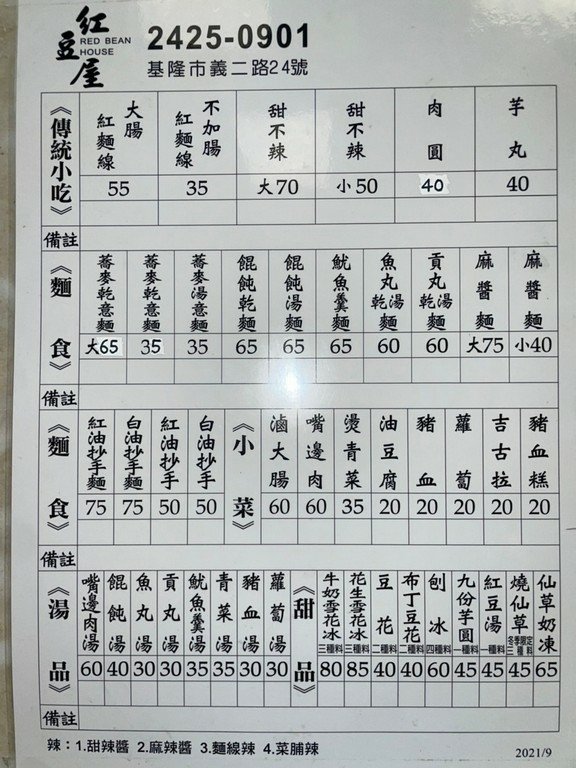 紅豆屋
RED BEAN
HOUSE
2425-0901
基隆市義二路24號
《傳統小吃》
大腸紅麵線 不加腸紅麵線 甜不辣 甜不辣 肉圓 芋丸
55 35 大70 小50 40 40
備註
《麵食》
蕎麥乾意麵 蕎麥乾意麵 蕎麥湯意麵 餛飩乾麵 餛飩湯麵 魷魚羹麵 魚丸乾湯麵 貢丸乾湯麵 麻醬麵 麻醬麵
大65 35 35 65 65 65 60 60 大75 小40
備註
《麵食》
紅油抄手麵 白油抄手麵 紅油抄手 白油抄手
75 75 50 50
《小菜》
滷大腸 嘴邊肉 燙青菜 油豆腐 豬血 蘿蔔 吉古拉 豬血糕
60 60 35 20 20 20 20 20
備註
《湯品》
嘴邊肉湯 餛飩湯 魚丸湯 貢丸湯 魷魚羹湯 青菜湯 豬血湯 蘿蔔湯
60 40 30 30 35 35 30 30
《甜品》
牛奶雪花冰三種料 花生雪花冰三種料 豆花二種料 布丁豆花二種料 刨冰四種料 九份芋圓一種料 紅豆湯一種料 燒仙草冬季限定三種料 仙草奶凍
80 85 40 40 60 45 45 45 65
備註
辣：1.甜辣醬 2.麻辣醬 3.麵線辣 4.菜脯辣
2021/9